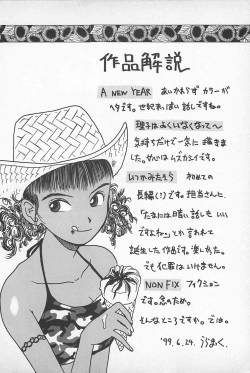 作品解説
A NEW YEAR あいかわらずカラーが
ヘタです。世紀末っぽい話しですね。
理子はよくいなくなって〜
気持ちだけで一気に描きま
した。女心はムズカシイです。
いつかみたそら 初めての
長編(?)です。担当さんに、
「たまには暗い話しもいい
ですよね」とか言われて
誕生した作品です。楽しかった。
でも犯罪はいけません。
NON FIX フィクション
です。念のため。
そんなところですか。では。
'99.6.24. うらまっく